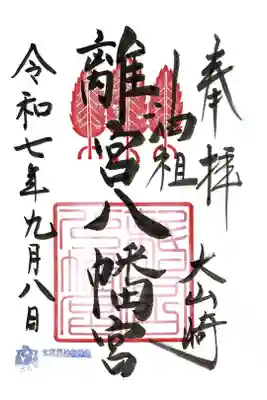 奉拝
大山崎
油祖
離宮八幡宮
令和七年九月八日